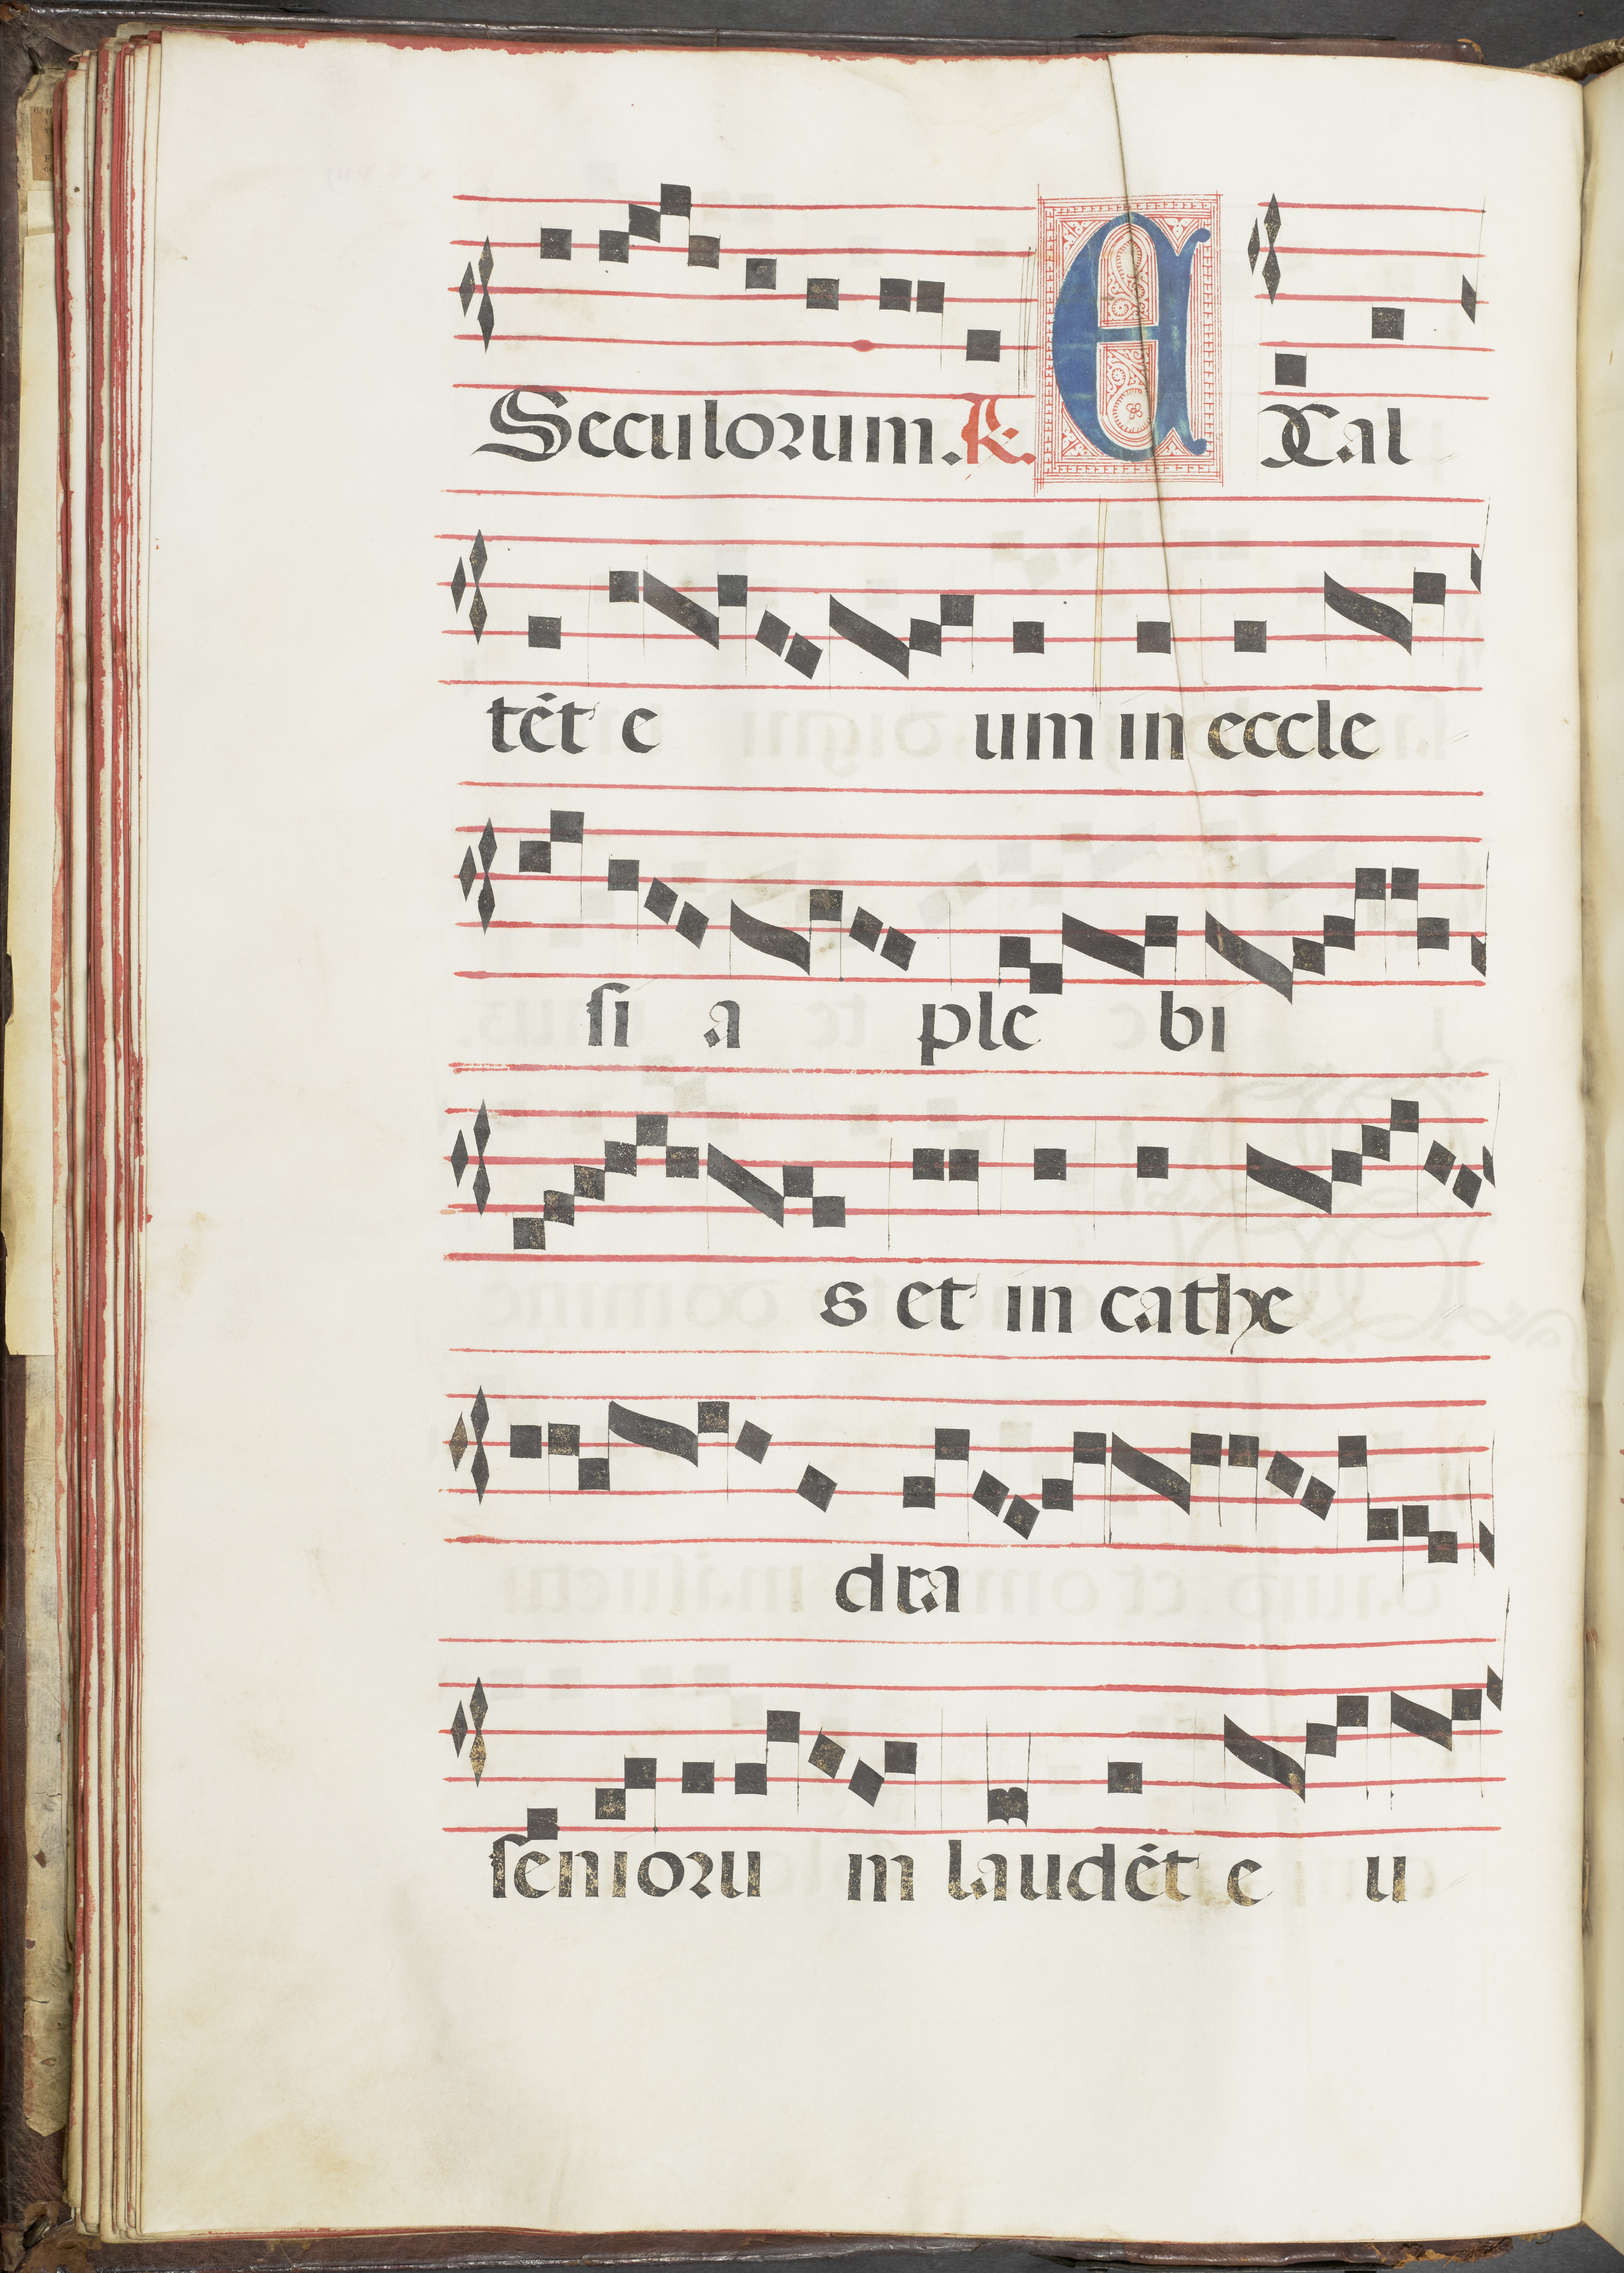 Seculorum. R. EXal
tēt e um in eccle
si a ple bi
s et in cathe
dra
senioru m laudēt e u